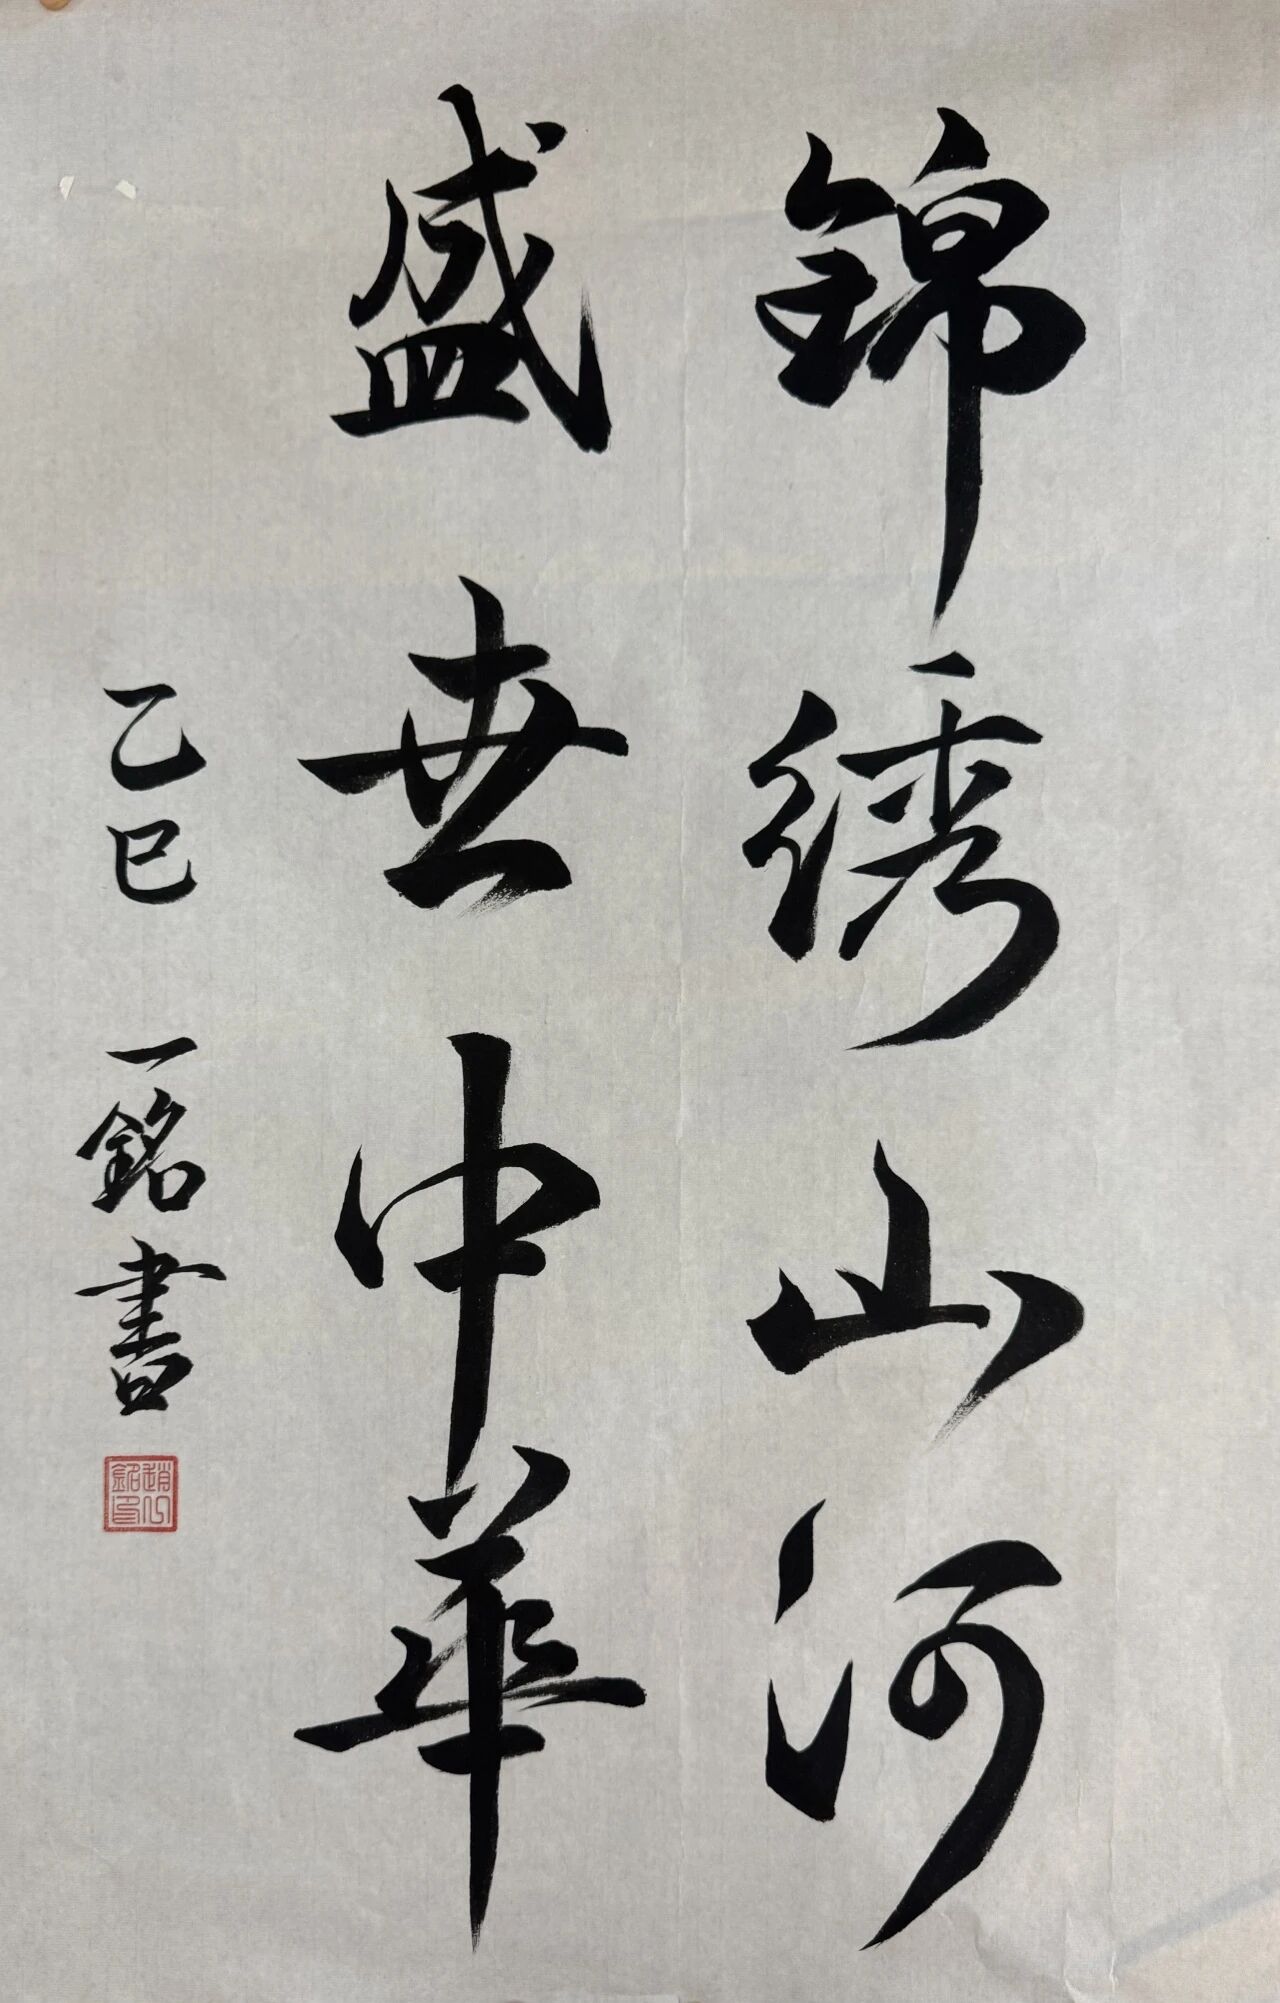 錦绣山河
盛世中華
乙巳 一銘書